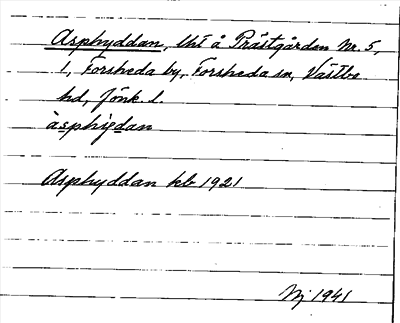 Asphyddan, lht å Prästgården Nr. 5,
1, Forsheda by, Forsheda sn, Västbo
hd, Jönk. l.
àsphìe̥dan
Asphyddan kb 1921
Nj 1941